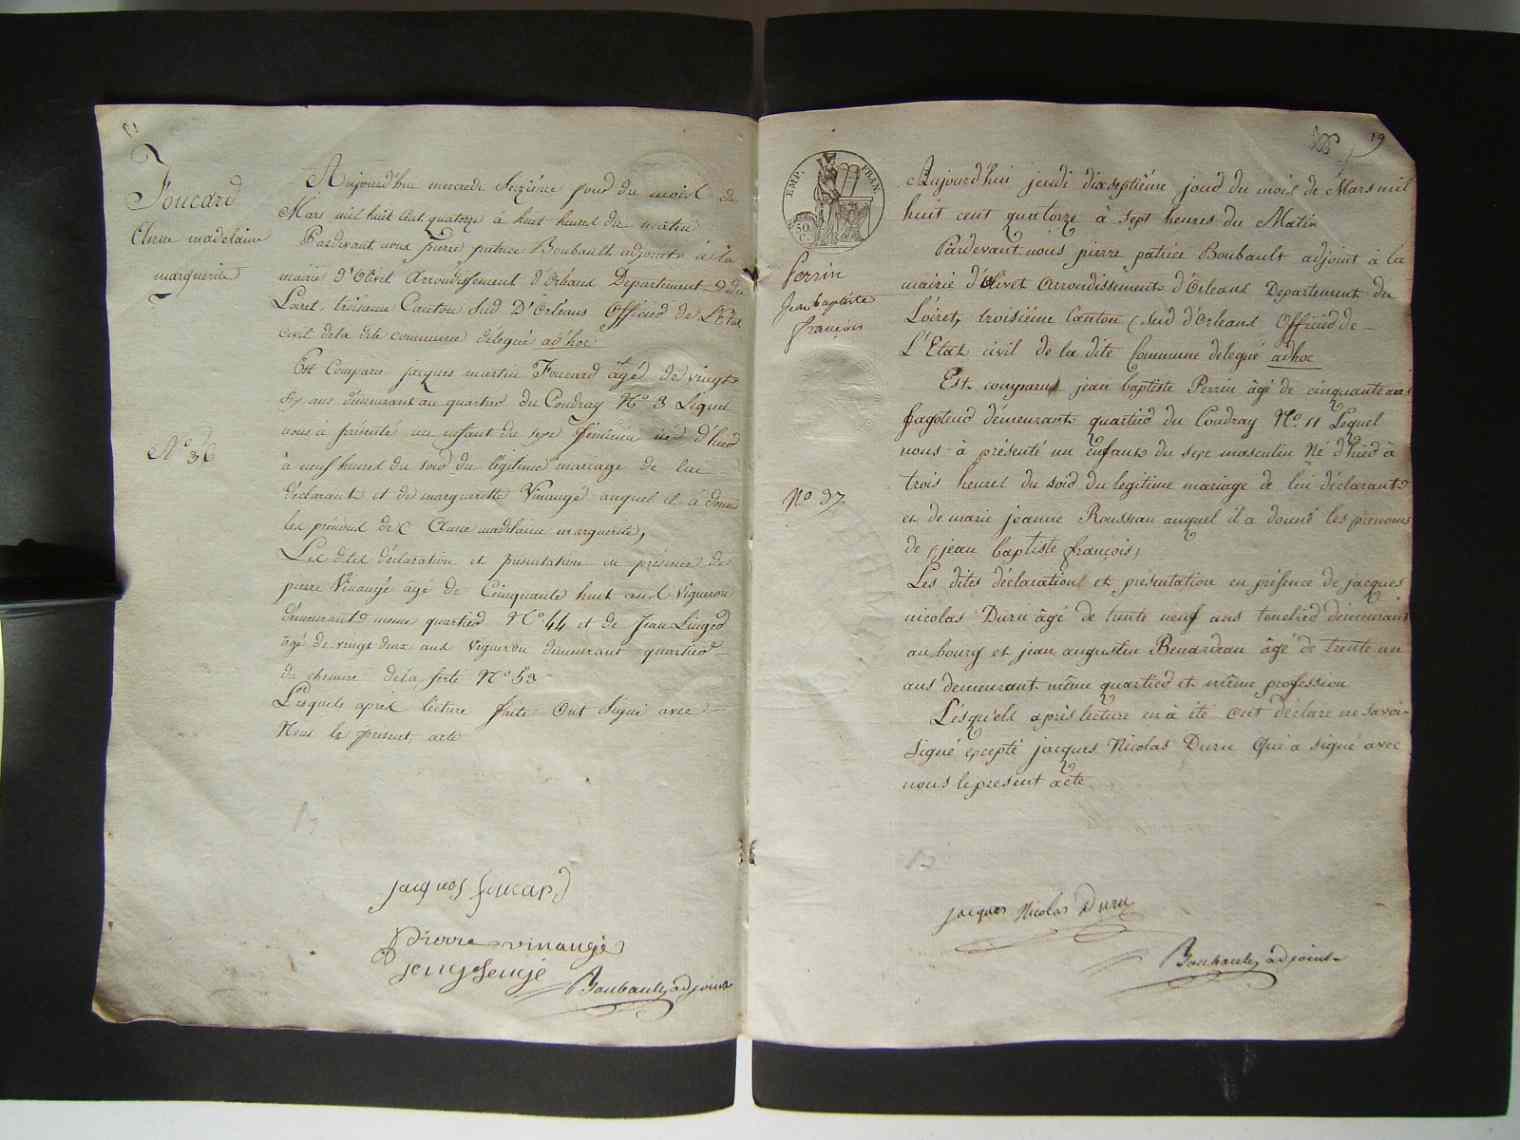 Foucard
Anne madelaine
marguerite
N° 36
Aujourd'hui mercredi Seizième jour du mois de
Mars mil huit cent quatorze à huit heures du matin
Pardevant nous pierre patrice Boubault adjoint à la
mairie d'Olivet Arrondissement d'Orléans Departement du
Loiret, troisieme Canton Sud D'Orléans Officier de L'Etat
civil dela dite commune délégué ad'hoc
Est Comparu jacques martin Foucard âgé de vingt
six ans démeurant au quartier du Coudray N° 3 Lequel
nous à présenté un enfant du sexe féminin né d'hier
à neuf heures du soir du légitime mariage de lui
déclarant et de margueritte Vinauger auquel il à donné
les prénoms de Anne madelaine marguerite,
Les dites déclaration et présentation en présence de
pierre Vinaugé âgé de Cinquante huit ans Vigneron
démeurant même quartier N° 44 et de Jean Lingé
âgé de vingt deux ans Vigneron demeurant quartier
du chemin déla ferté N° 53
Lesquels après lecture faite Ont Signé avec
Nous le présent acte
jacques foucard
pierre vinaugé
Boubault, adjoint
19
EMP. FRAN.
50
C.
Perrin
Jean baptiste
françois
N° 37
Aujourd'hui jeudi dixseptième jour du mois de Mars mil
huit cent quatorze à sept heures du Matin
Pardevant nous pierre patrice Boubault adjoint à la
mairie d'Olivet arrondissement d'Orleans Departement du
Loiret, troisiéme Canton (Sud d'Orleans Officier de
L'Etat civil de la dite Commune delegué adhoc
Est comparu jean baptiste Perrin âgé de cinquante ans
fagoteur démeurant quartier du Coudray N° 11 Lequel
nous à présenté un Enfant du sexe masculin Né d'hier à
trois heures du soir du legitime mariage de lui déclarant
et de marie jeanne Rousseau auquel il a donné les prenoms
de (jean baptiste françois)
Les dites déclarations et présentation en présence de jacques
nicolas Duru âgé de trente neuf ans tonelier démeurant
au bourg et jean augustin Beaudeau âgé de trente un
ans demeurant même quartier et même profession
Lesquels après lecture en à été ont déclaré ne savoir
signé excepté jacques Nicolas Duru Qui a signé avec
nous le présent acte
jacques Nicolas Duru
Boubault, adjoint